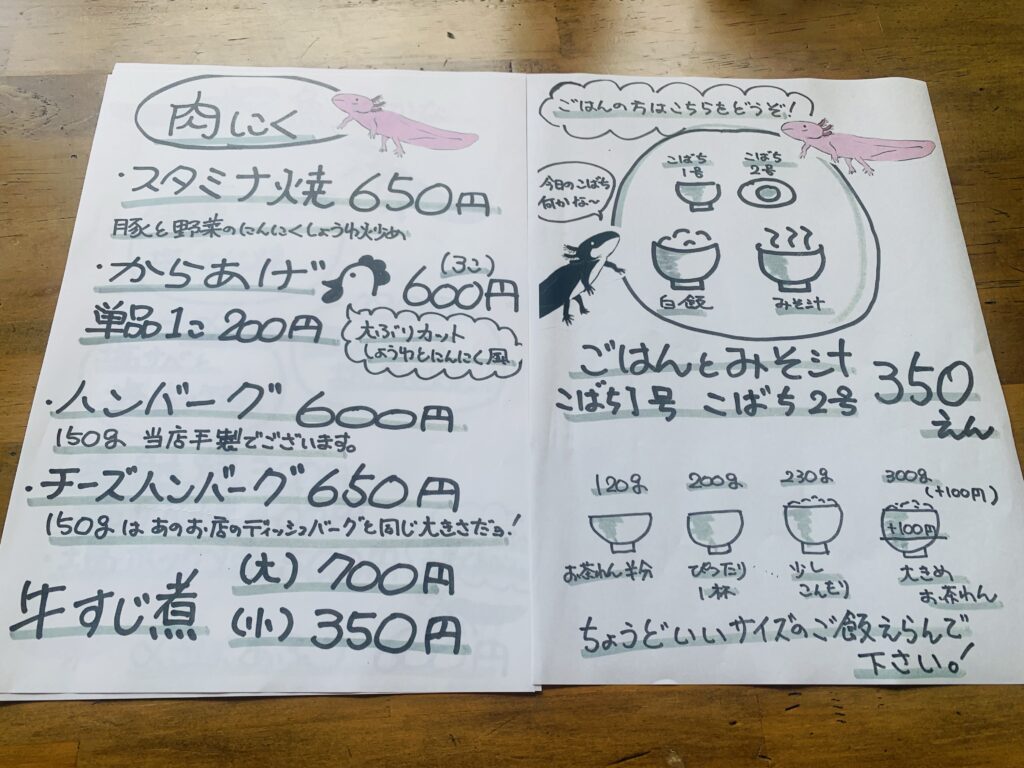 肉にく
・スタミナ焼 650円
豚と野菜のにんにくしょうゆ炒め
・からあげ (3こ) 600円
単品1こ 200円
大ぶりカット
しょうゆとにんにく風
・ハンバーグ 600円
150g 当店手製でございます。
・チーズハンバーグ 650円
150gはあのお店のディッシュバーグと同じ大きさだョ!
牛すじ煮
(大) 700円
(小) 350円
ごはんの方はこちらをどうぞ!
今日のこばち
何かな〜
こばち
1号
こばち
2号
白飯
みそ汁
ごはんとみそ汁
こばち1号 こばち2号
350
えん
120g 200g 230g 300g
(+100円)
+100円
お茶わん半分
ぴったり
1杯
少し
こんもり
大きめ
お茶わん
ちょうどいいサイズのご飯えらんで
下さい。!